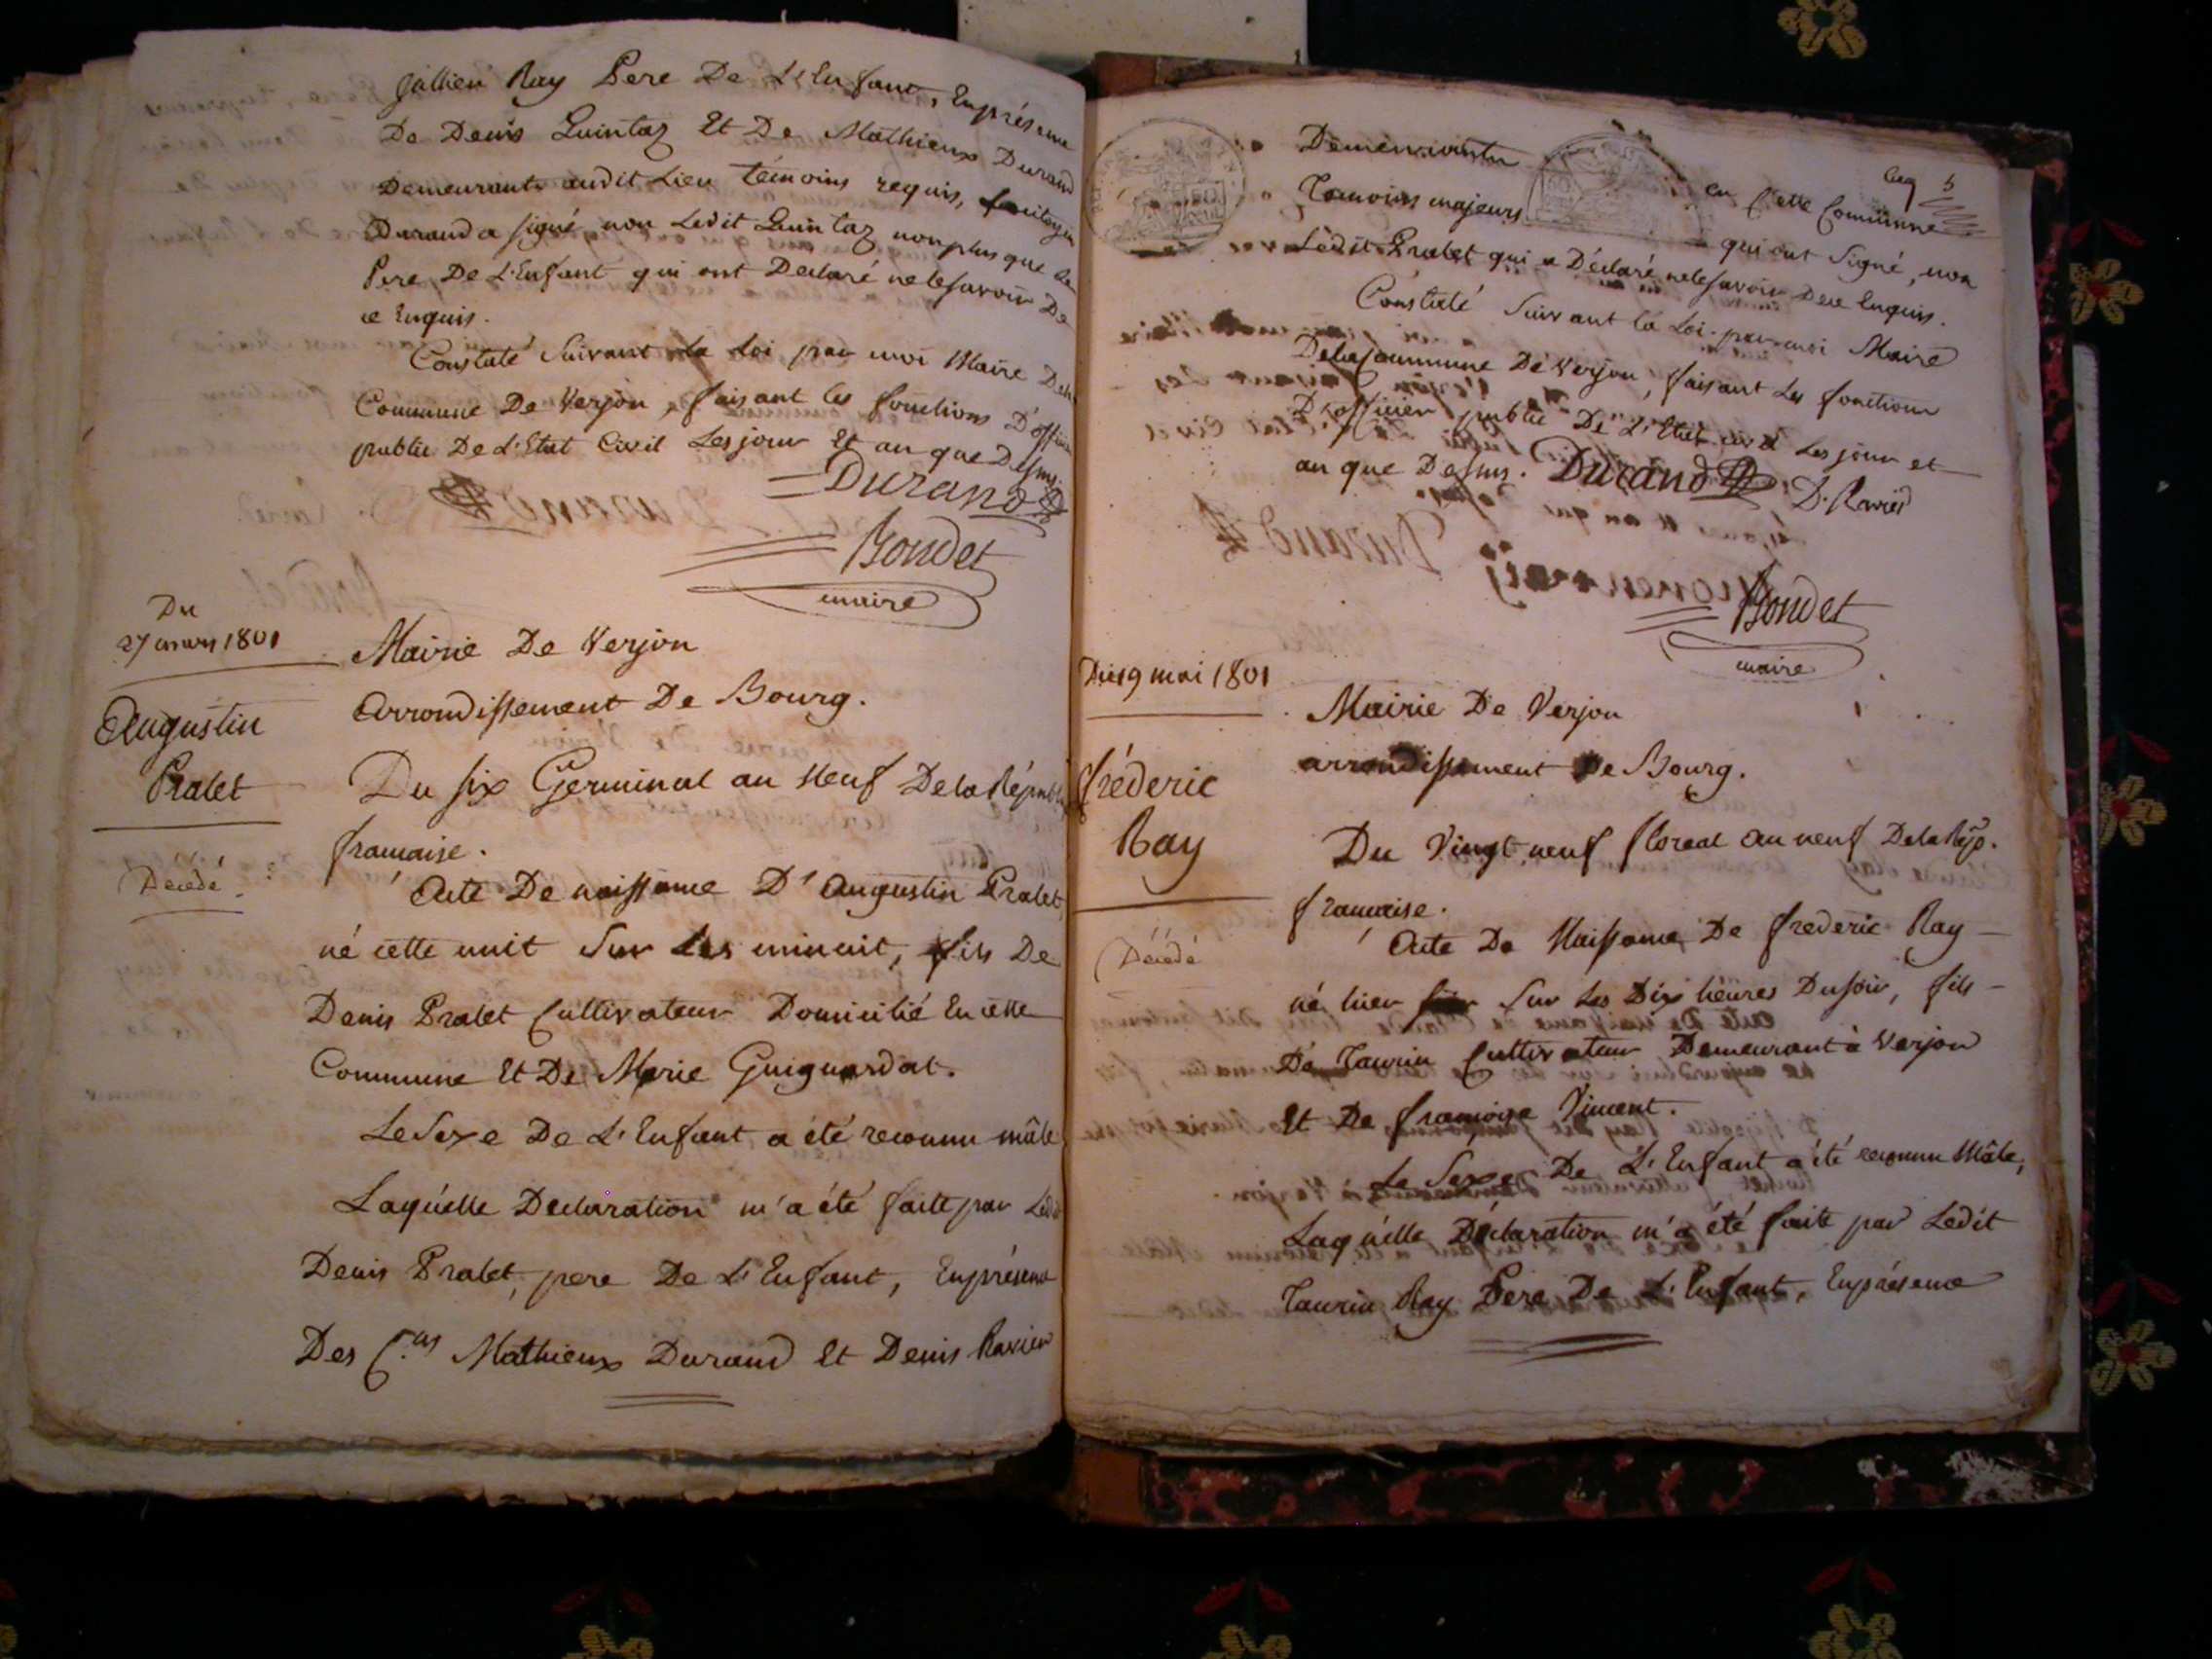 Jullien Ray Pere De L'Enfant, En présence
De Denis Quintaz Et De Mathieux Durand
Demeurants audit Lieu témoins requis,
Durand a signé, non Ledit Quintaz non plus que le
Pere De L'Enfant qui ont Declaré ne le savoir De
ce Enquis.
Constaté Suivant La Loi par moi Maire De la
Commune De Verjon, faisant les fonctions D'officier
public De L'Etat Civil Les jour Et an que Dessus.
Durand
Bondet
maire
Du
27 mars 1801
Augustin
Pralet
Décédé
Mairie De Verjon
Arrondissement De Bourg.
Du six Germinal an Neuf De la Répub
française.
Acte De naissance D'Augustin Pralet,
né cette nuit Sur Les minuit, fils De
Denis Pralet Cultivateur Domicilié En cette
Commune Et De Marie Guignardat.
Le Sexe De L'Enfant a été reconnu mâle
Laquelle Declaration m'a été faite par Ledit
Denis Pralet, pere De L'Enfant, En présence
Des C.ens Mathieux Durand Et Denis Ravier
Cinq 5
Demeurants en Cette Commune
Temoins majeurs qui ont Signé, non
Ledit Pralet qui a Déclaré ne le savoir De ce Enquis.
Constaté Suivant la Loi par moi Maire
De la Commune De Verjon, faisant Les fonctions
D'officier public De L'Etat civil Les jour et
an que Dessus. Durand D. Ravier
Bondet
maire
Du 19 mai 1801
fréderic
Ray
Décédé
Mairie De Verjon
arrondissement De Bourg.
Du Vingt neuf floreal an neuf De la Rép.
française.
Acte De Naissance De frederic Ray
né hier Sur Les Dix héures Du soir, fils
De Taurin Cultivateur Demeurant à Verjon
Et De françoise Vincent.
Le Sexe De L'Enfant a été reconnu Mâle,
Laquelle Déclaration m'a été faite par Ledit
Taurin Ray Pere De L'Enfant, En présence